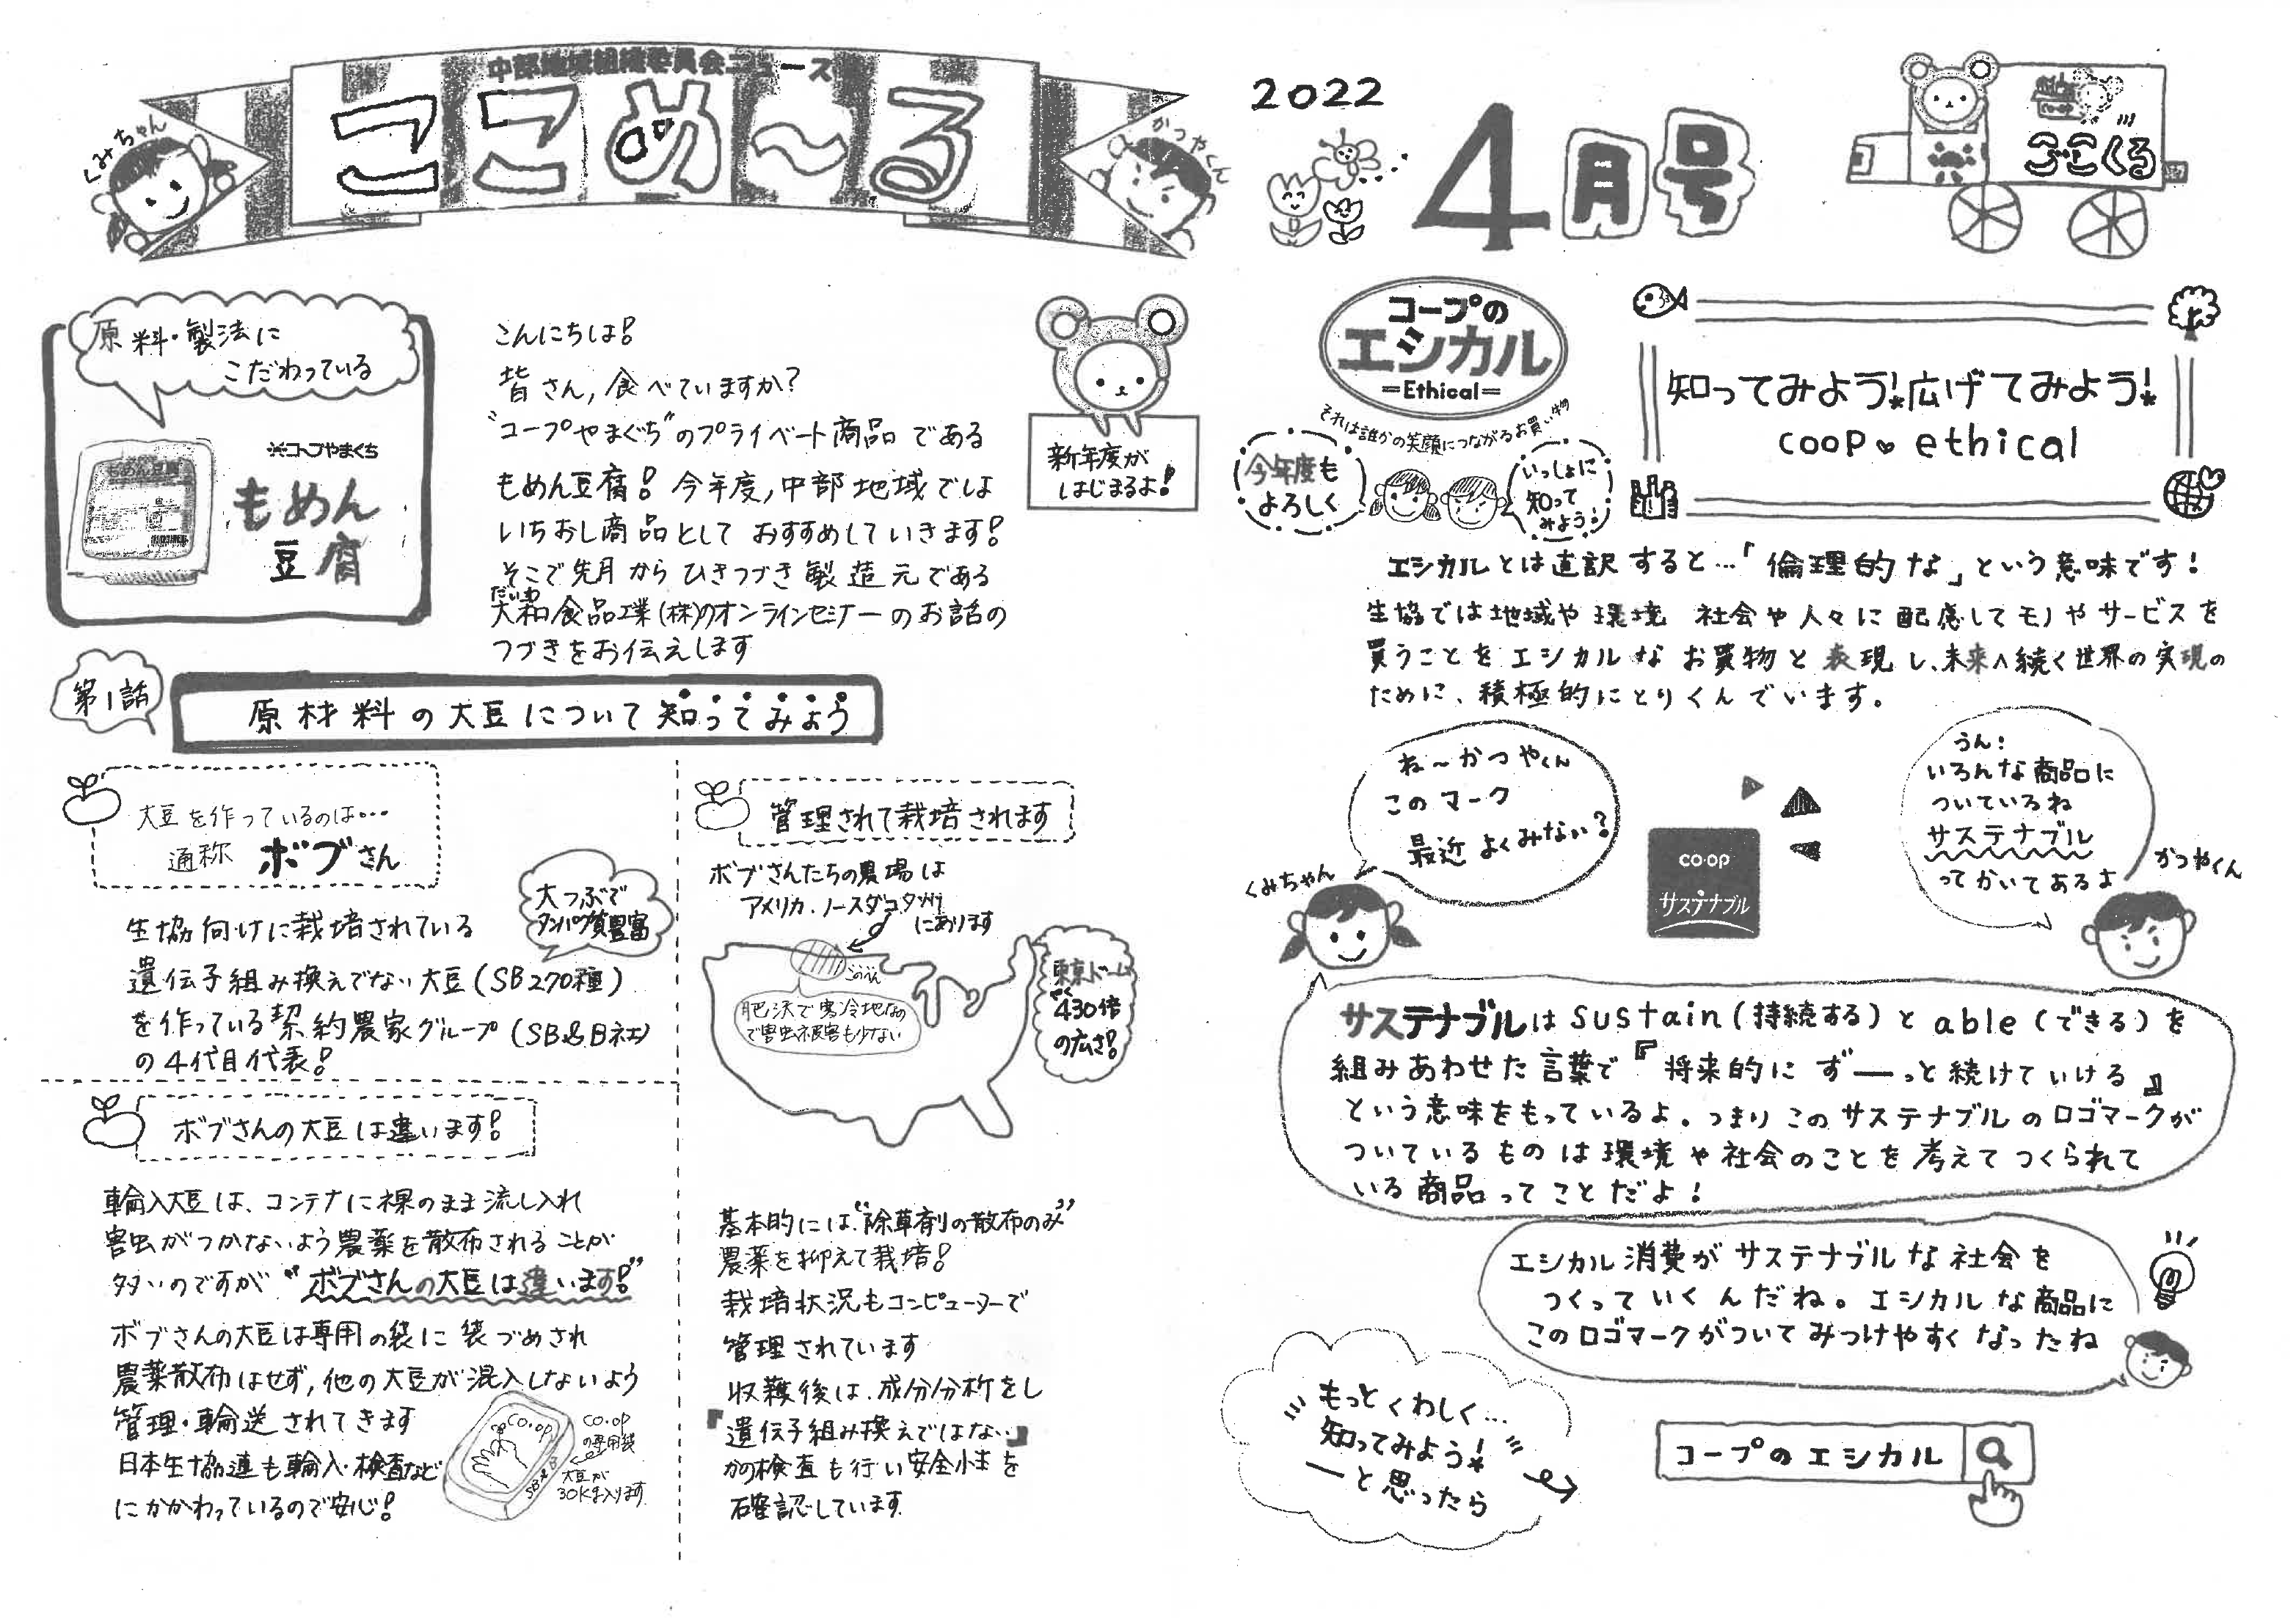 中部地域組織委員会ニュース
ここめ～る
くみちゃん
かつやくん
2022
4月号
ここくる
原料・製法に
こだわっている
コープやまぐち
もめん
豆腐
もめん豆腐
こんにちは!
皆さん,食べていますか?
"コープやまぐち"のプライベート商品である
もめん豆腐! 今年度,中部地域では
いちおし商品として おすすめしていきます!
そこで先月からひきつづき製造元である
だいわ
大和食品工業(株)のオンラインセミナーのお話の
つづきをお伝えします
新年度が
はじまるよ!
第1話
原材料の大豆について知ってみよう
大豆を作っているのは…
通称 ボブさん
大つぶで
タンパク質豊富
生協向けに栽培されている
遺伝子組み換えでない大豆(SB270種)
を作っている契約農家グループ(SB&B社)
の4代目代表!
ボブさんの大豆は違います!
輸入大豆は、コンテナに裸のまま流し入れ
害虫がつかないよう農薬を散布されることが
多いのですが "ボブさんの大豆は違います!"
ボブさんの大豆は専用の袋に袋づめされ
農薬散布はせず,他の大豆が混入しないよう
管理・輸送されてきます
日本生協連も輸入・検査など
にかかわっているので安心!
CO・OP
SB&B
CO・OP
の専用袋
大豆が
30Kg入ります
管理されて栽培されます
ボブさんたちの農場は
アメリカ.ノースダコタ州
にあります
このへん
肥沃で寒冷地なの
で害虫被害も少ない
東京ドーム
やく
430倍
の広さ!
基本的には"除草剤の散布のみ"
農薬を抑えて栽培!
栽培状況もコンピューターで
管理されています
収穫後は.成分分析をし
『遺伝子組み換えではない』
かの検査も行い安全性を
確認しています.
コープの
エシカル
=Ethical=
それは誰かの笑顔につながるお買い物
今年度も
よろしく
いっしょに
知って
みよう!
知ってみよう!広げてみよう!
coop♥ethical
エシカルとは直訳すると…「倫理的な」という意味です!
生協では地域や環境 社会や人々に配慮してモノやサービスを
買うことをエシカルなお買物と表現し、未来へ続く世界の実現の
ために、積極的にとりくんでいます。
ね～かつやくん
このマーク
最近よくみない?
くみちゃん
co・op
サステナブル
うん!
いろんな商品に
ついているね
サステナブル
ってかいてあるよ
かつやくん
サステナブルはsustain(持続する)とable(できる)を
組みあわせた言葉で『将来的に ずーっと続けていける』
という意味をもっているよ。つまりこのサステナブルのロゴマークが
ついているものは環境や社会のことを考えてつくられて
いる商品ってことだよ!
エシカル消費がサステナブルな社会を
つくっていくんだね。エシカルな商品に
このロゴマークがついてみつけやすくなったね
もっとくわしく…
知ってみよう!
ーと思ったら
コープのエシカル